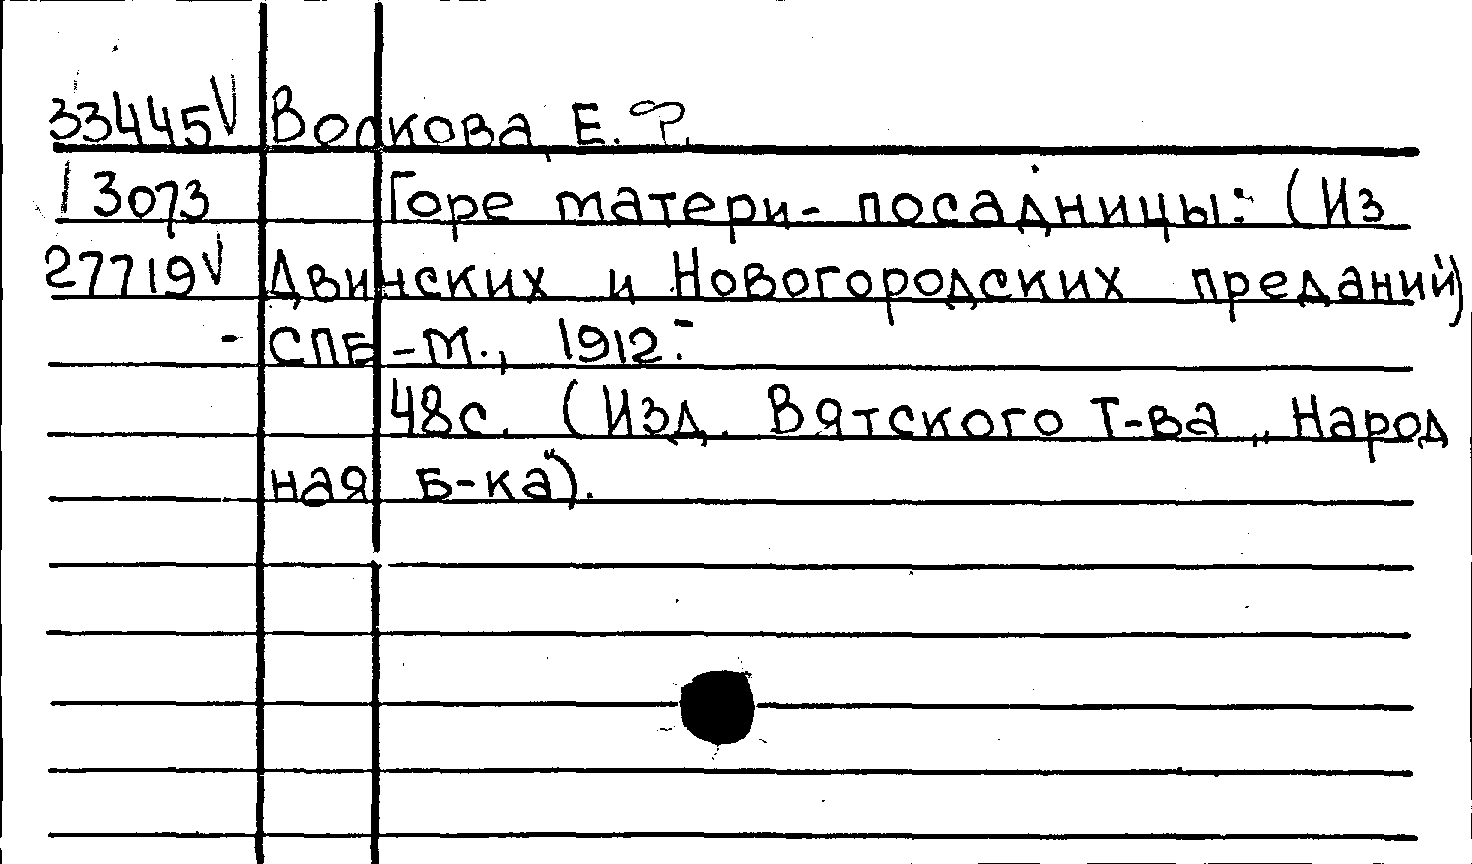 33445V Волкова, Е. Ф.
13073 Горе матери-посадницы: (Из
27719V Двинских и Новогородских преданий)
- СПБ-М., 1912.-
48с. (Изд. Вятского Т-ва „Народ
ная Б-ка").